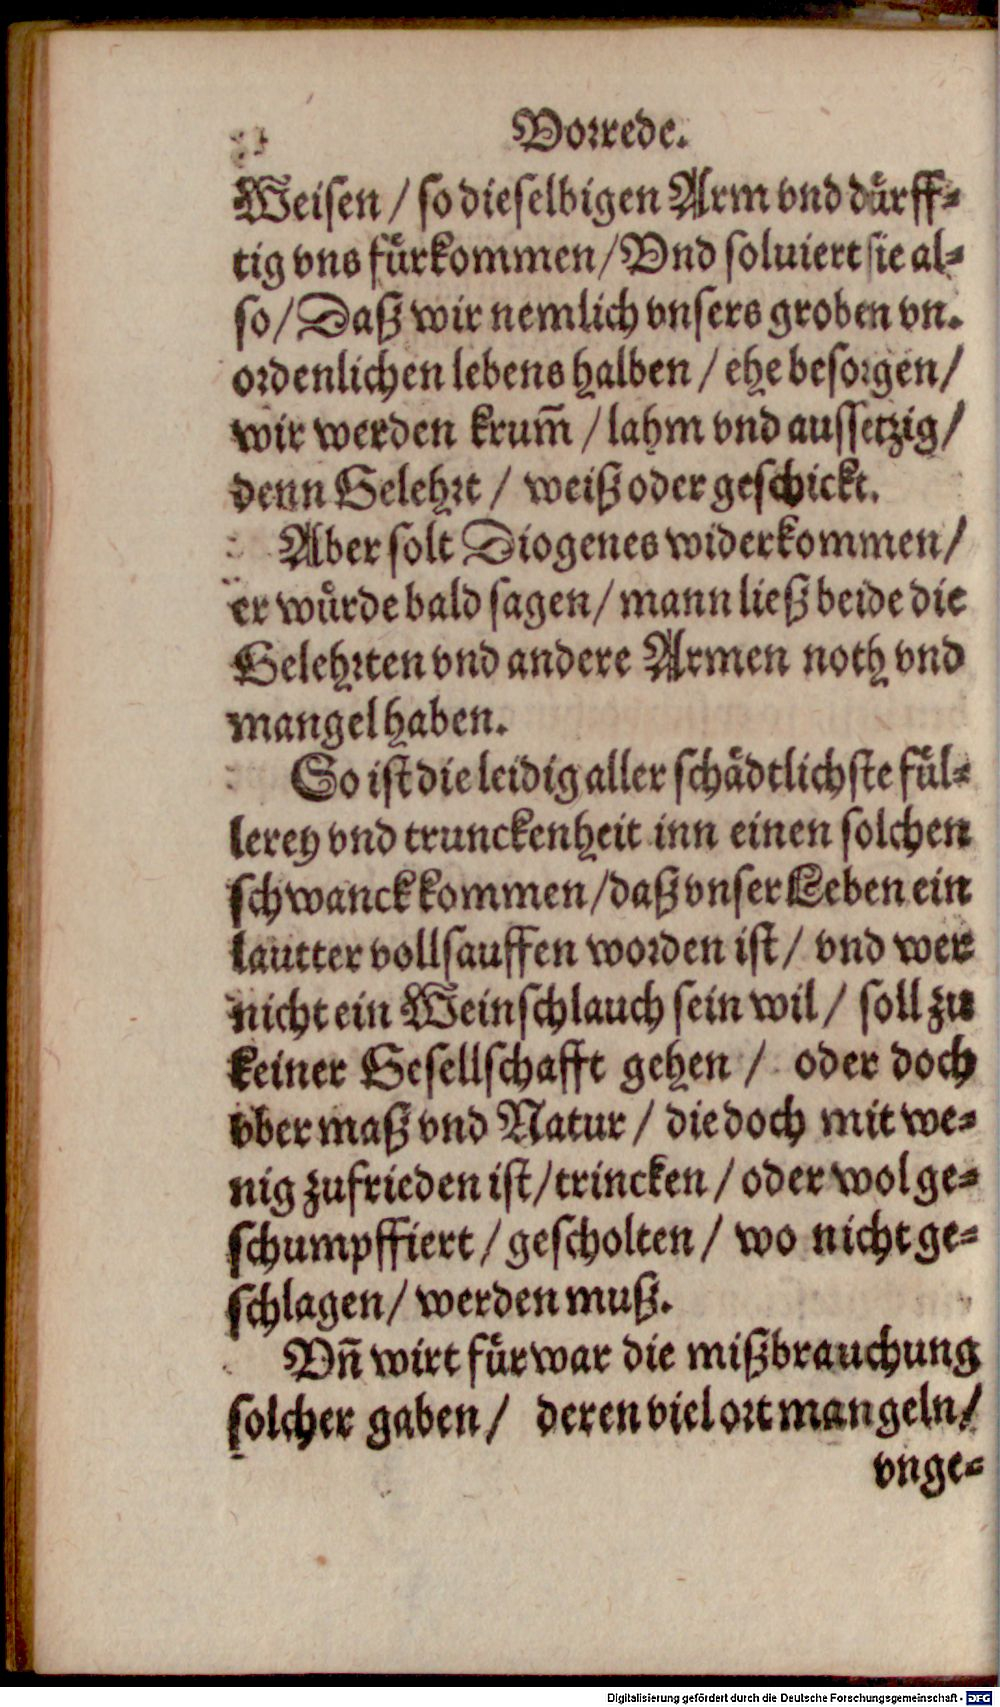 Vorrede.
Weisen / so dieselbigen Arm vnd duͤrff-
tig vns fuͤrkommen / Vnd soluiert sie al-
so / Daß wir nemlich vnsers groben vn-
ordenlichen lebens halben / ehe besorgen /
wir werden krum̃ / lahm vnd aussetzig /
denn Gelehrt / weiß oder geschickt.
Aber solt Diogenes widerkommen /
er wuͤrde bald sagen / mann ließ beide die
Gelehrten vnd andere Armen noth vnd
mangel haben.
So ist die leidig aller schaͤdtlichste fuͤl-
lerey vnd trunckenheit inn einen solchen
schwanck kommen / daß vnser Leben ein
lautter vollsauffen worden ist / vnd wer
nicht ein Weinschlauch sein wil / soll zu
keiner Gesellschafft gehen / oder doch
vber maß vnd Natur / die doch mit we-
nig zufrieden ist / trincken / oder wol ge-
schumpffiert / gescholten / wo nicht ge-
schlagen / werden muß.
Vñ wirt fuͤrwar die mißbrauchung
solcher gaben / deren viel ort mangeln /
vnge-
Digitalisierung gefördert durch die Deutsche Forschungsgemeinschaft - DFG